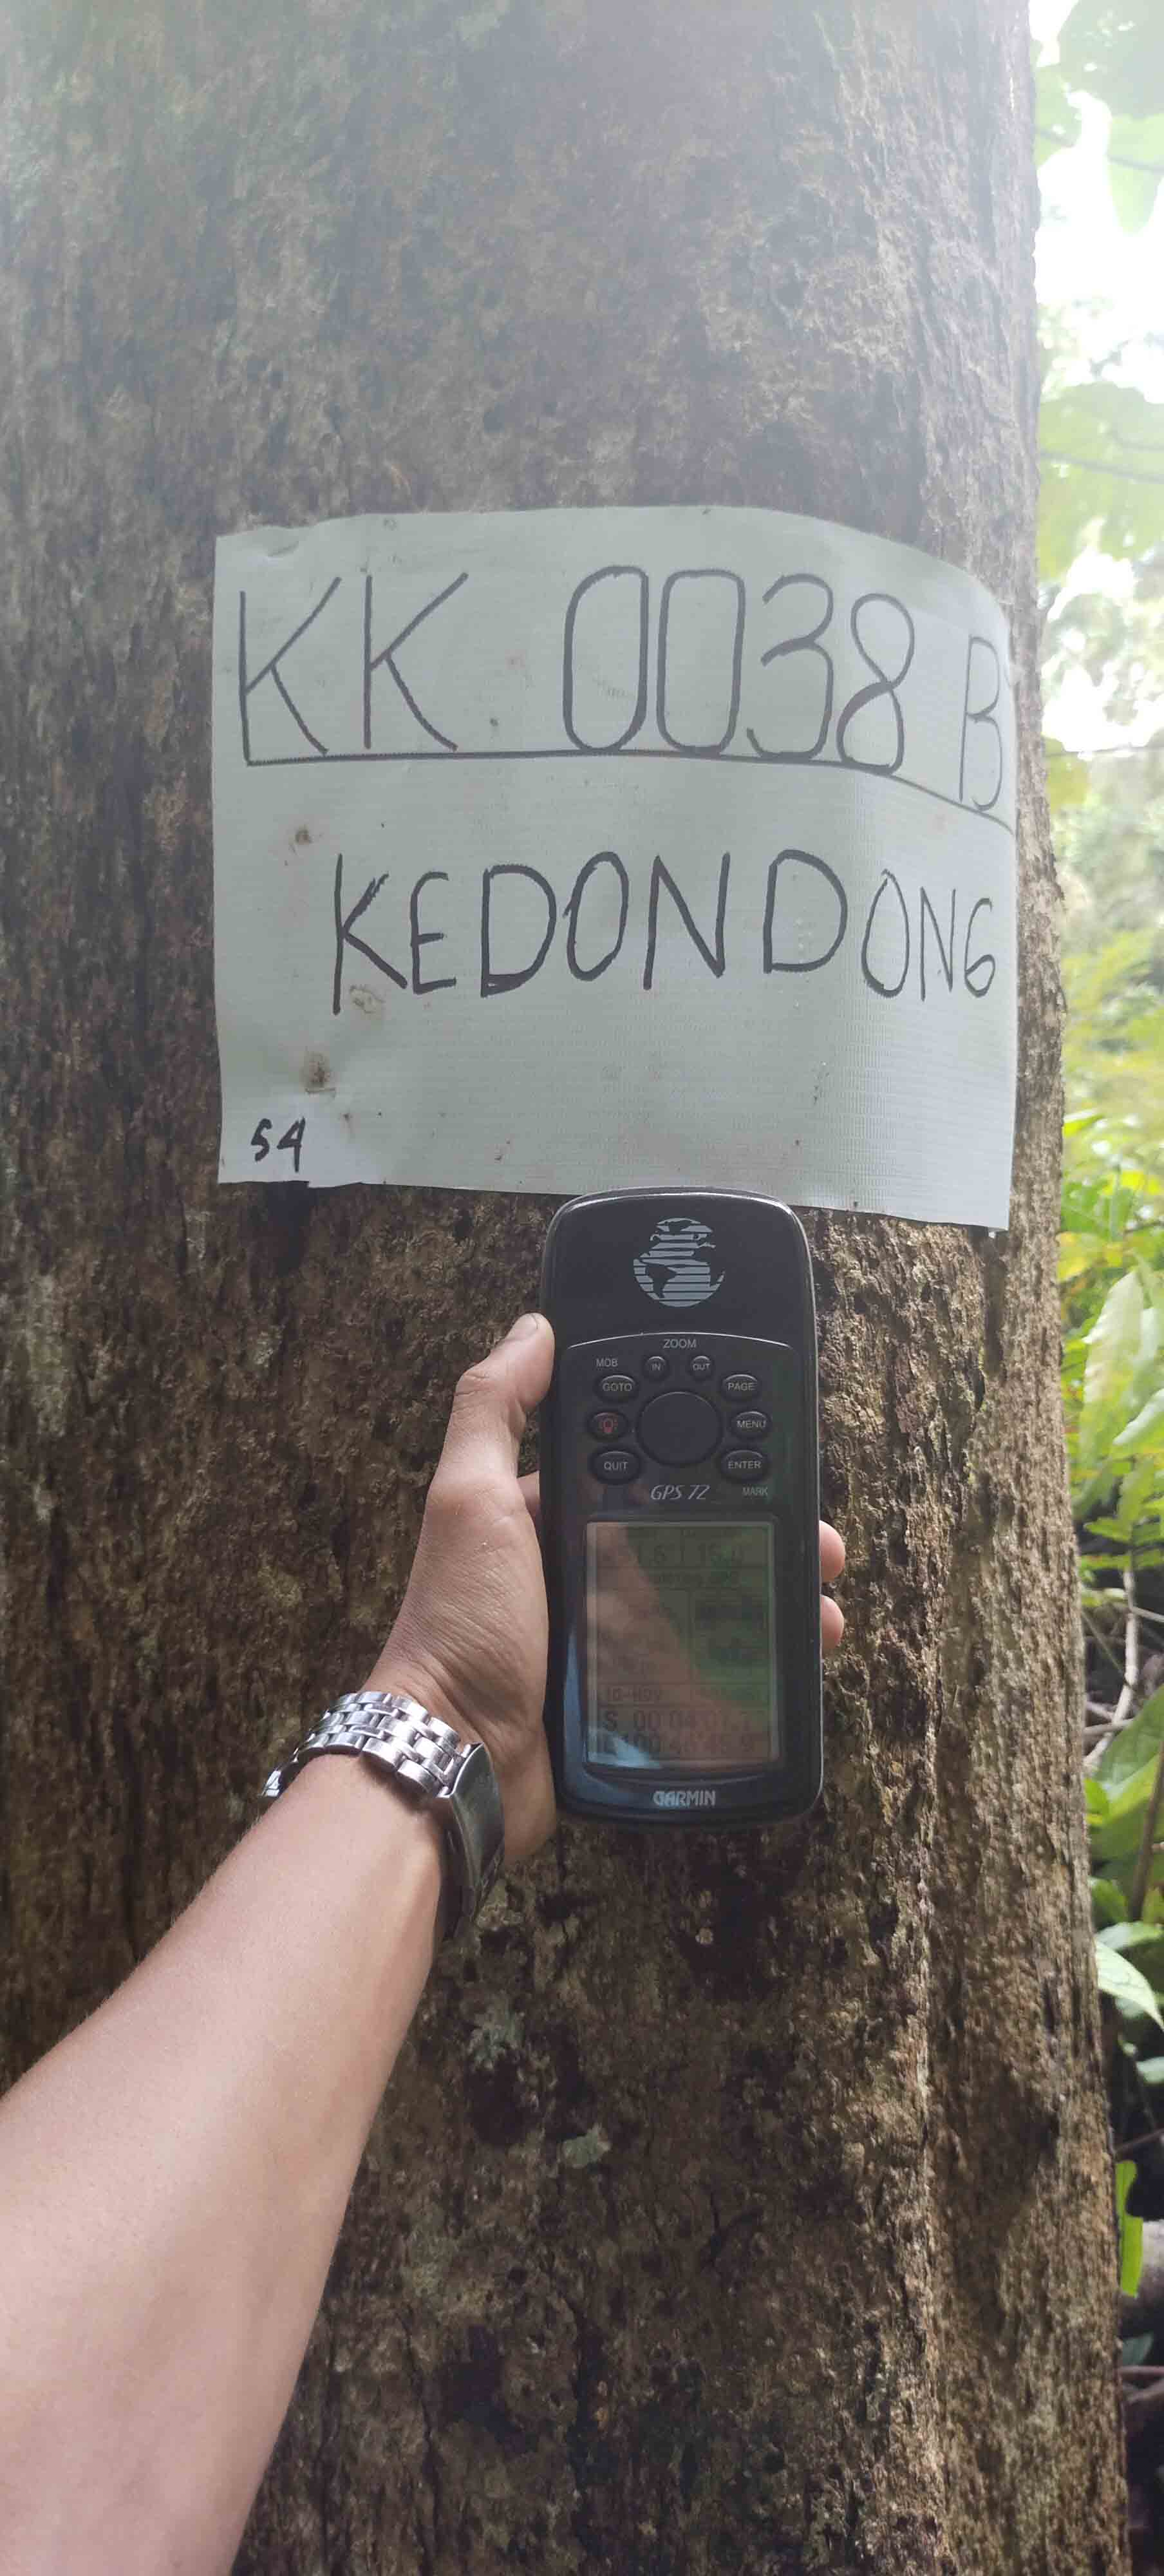 KK 0038 B
KEDONDONG
54
ZOOM
MOB IN OUT
GOTO PAGE
MENU
QUIT ENTER
GPS 72 MARK
GARMIN